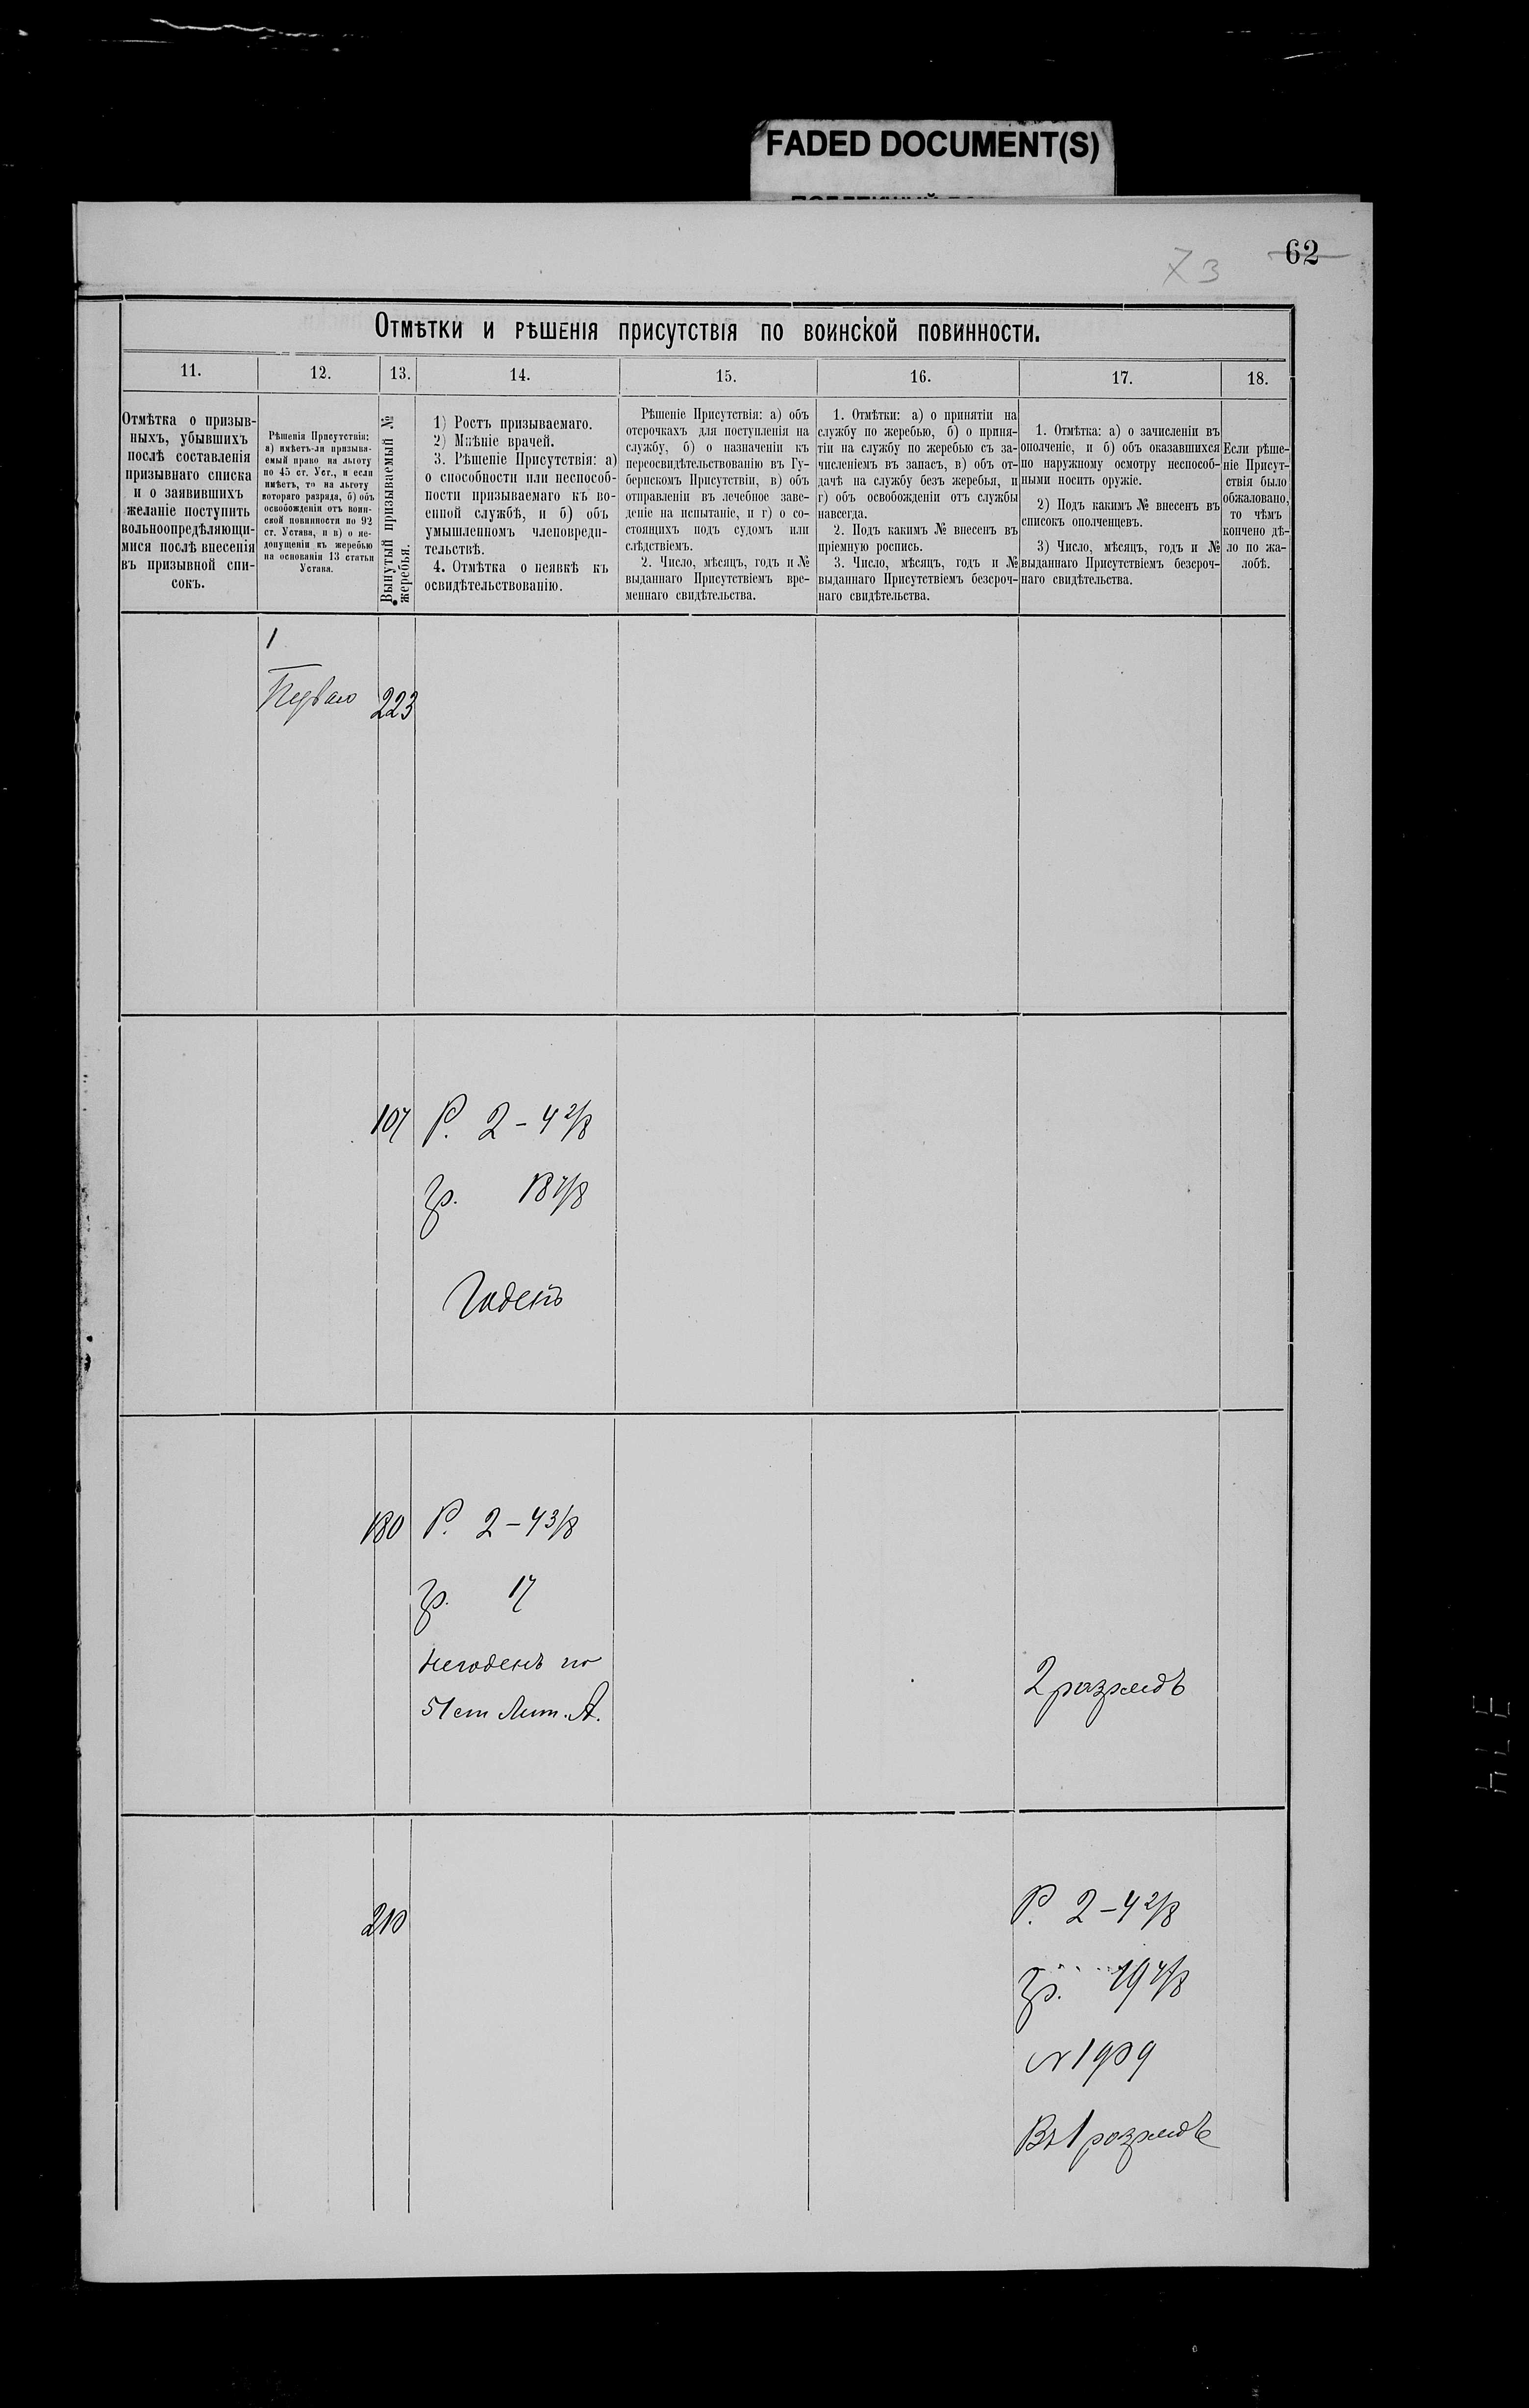 FADED DOCUMENT(S)
62
73
Отмѣтки и рѣшенія присутствія по воинской повинности.
11. 12. 13. 14. 15. 16. 17. 18.
Отмѣтка о призыв-
ныхъ, убывшихъ
послѣ составленія
призывнаго списка
и о заявившихъ
желаніе поступить
вольноопредѣляющи-
мися послѣ внесенія
въ призывной спи-
сокъ.
Рѣшенія Присутствія:
а) имѣетъ-ли призыва-
емый право на льготу
по 45 ст. Уст., и если
имѣетъ, то на льготу
котораго разряда, б) объ
освобожденіи отъ воин-
ской повинности по 92
ст. Устава, и в) о не-
допущеніи къ жеребью
на основаніи 13 статьи
Устава.
Вынутый призываемый №
жеребья.
1) Ростъ призываемаго.
2) Мнѣніе врачей.
3. Рѣшеніе Присутствія: а)
о способности или неспособ-
ности призываемаго къ во-
енной службѣ, и б) объ
умышленномъ членовреди-
тельствѣ.
4. Отмѣтка о неявкѣ къ
освидѣтельствованію.
Рѣшеніе Присутствія: а) объ
отсрочкахъ для поступленія на
службу, б) о назначеніи къ
переосвидѣтельствованію въ Гу-
бернскомъ Присутствіи, в) объ
отправленіи въ лечебное заве-
деніе на испытаніе, и г) о со-
стоящихъ подъ судомъ или
слѣдствіемъ.
2. Число, мѣсяцъ, годъ и №
выданнаго Присутствіемъ вре-
меннаго свидѣтельства.
1. Отмѣтки: а) о принятіи на
службу по жеребью, б) о приня-
тіи на службу по жеребью съ за-
численіемъ въ запасъ, в) объ от-
дачѣ на службу безъ жеребья, и
г) объ освобожденіи отъ службы
навсегда.
2. Подъ какимъ № внесенъ въ
пріемную роспись.
3. Число, мѣсяцъ, годъ и №
выданнаго Присутствіемъ безсроч-
наго свидѣтельства.
1. Отмѣтка: а) о зачисленіи въ
ополченіе, и б) объ оказавшихся
по наружному осмотру неспособ-
ными носить оружіе.
2) Подъ какимъ № внесенъ въ
списокъ ополченцевъ.
3) Число, мѣсяцъ, годъ и №
выданнаго Присутствіемъ безсроч-
наго свидѣтельства.
Если рѣше-
ніе Присут-
ствія было
обжаловано,
то чѣмъ
кончено дѣ-
ло по жа-
лобѣ.
1
Перваго 223
107 Р. 2-4 2/8
гр. 18 4/8
Годенъ
180 Р. 2-4 3/8
гр. 17
Негоденъ по
51 ст Лит. А.
2 разрядъ
210 Р. 2-4 2/8
гр. 19 4/8
№ 1909
Въ 1 разрядъ